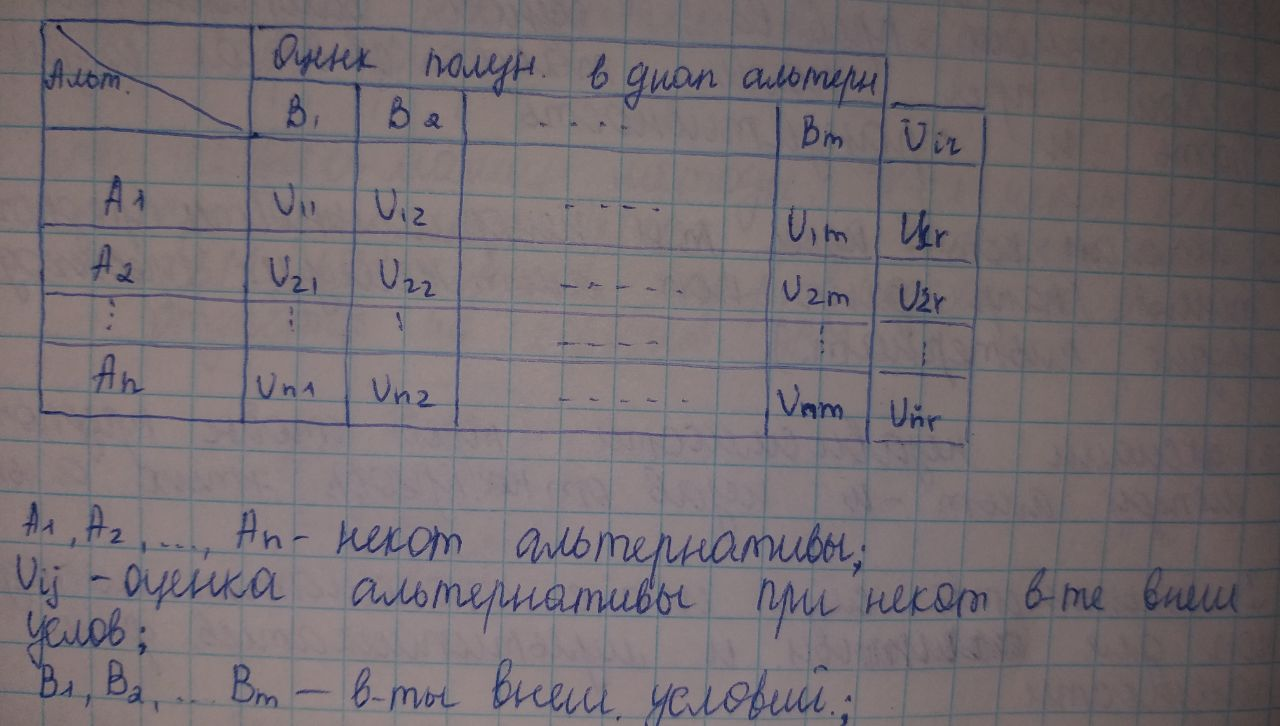 Альт. Оценк получ. в диап альтерн
B1 B2 - - - - Bm Uir
A1 U11 U12 - - - - U1m U1r
A2 U21 U22 - - - - - U2m U2r
⋮ ⋮ ⋮ - - - - ⋮ ⋮
An Un1 Un2 - - - - - Unm Unr
A1, A2, ..., An - некот альтернативы;
Uij - оценка альтернативы при некот в-те внеш
услов;
B1, B2, ... Bm — в-ты внеш. условий.;